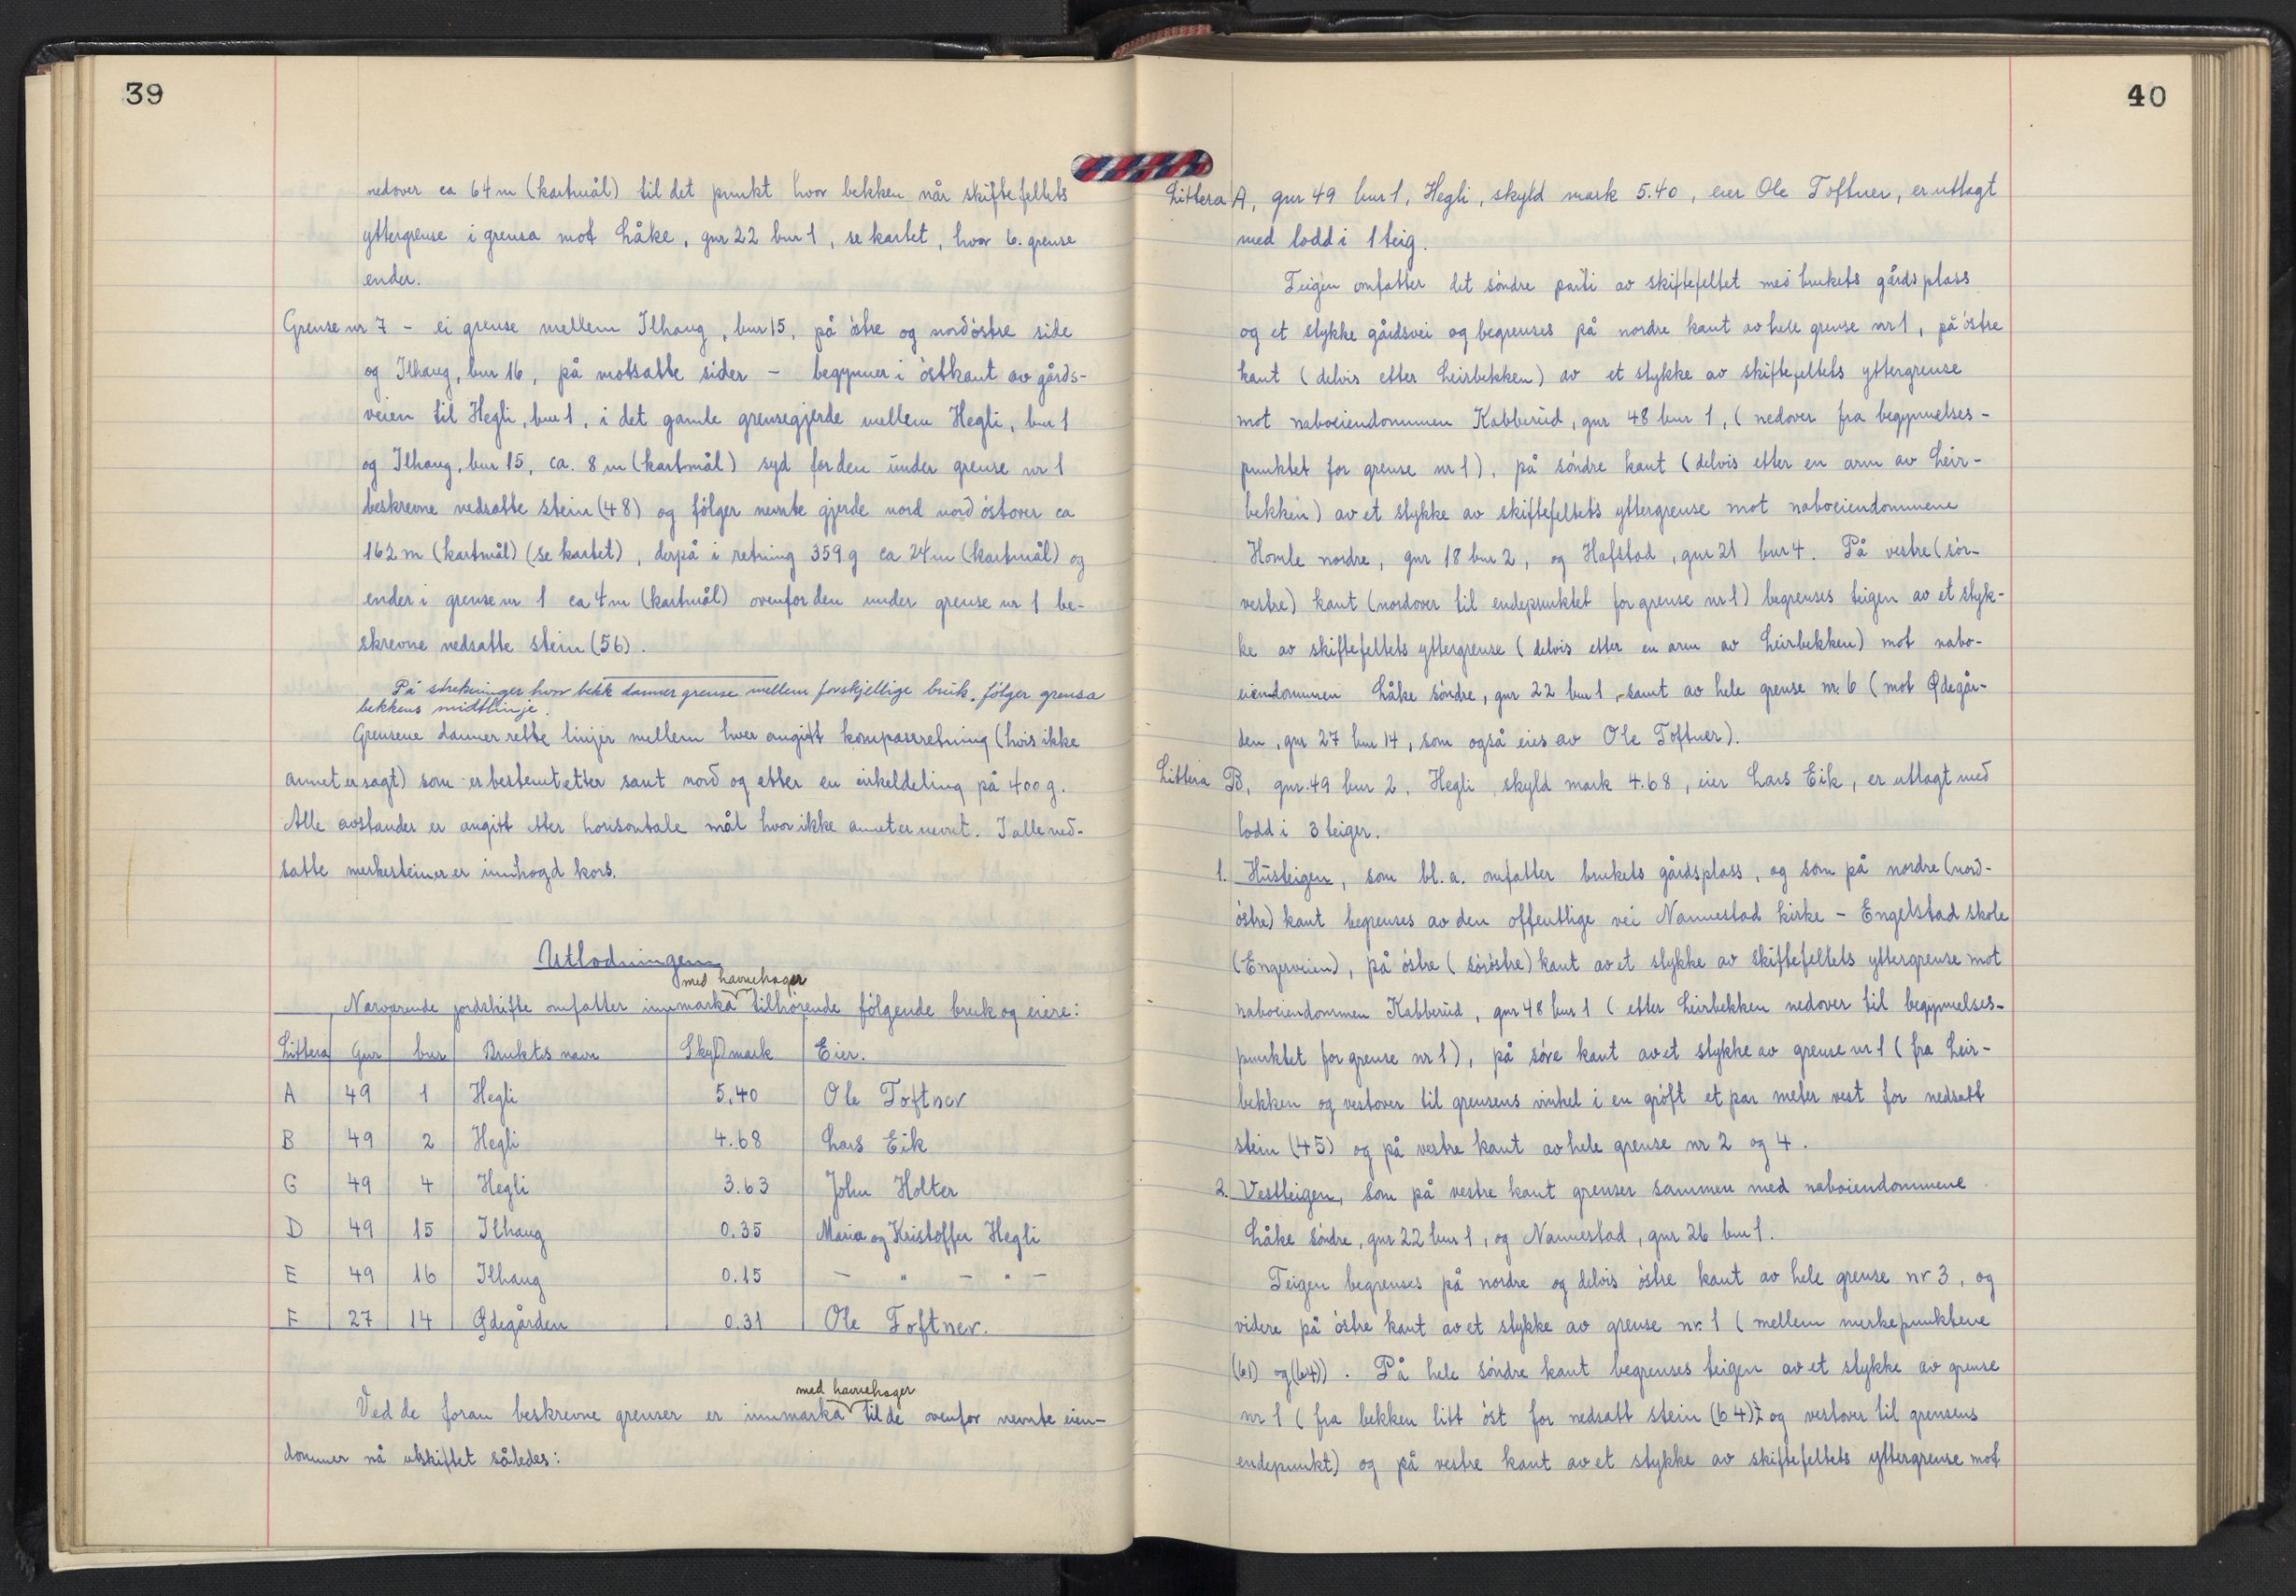 39
nedover ca 64 m (kartmål) til det punkt hvor bekken når skiftefeltets
yttergrense i grensa mot Låke, gnr 22 bnr 1, se kartet, hvor 6. grense
ender.
Grense nr 7 - ei grense mellem Ilhaug, bnr 15, på østre og nordøstre side
og Ilhaug, bnr 16, på motsatte sider - begynner i østkant av gårds-
veien til Hegli, bnr 1, i det gamle grensegjerde mellem Hegli, bnr 1
og Ilhaug, bnr 15, ca. 8 m (kartmål) syd for den under grense nr 1
beskrevne nedsatte stein (48) og følger nevnte gjerde nord nordøstover ca
162 m (kartmål) (se kartet), derpå i retning 359 g ca 24 m (kartmål) og
ender i grense nr 1 ca 4 m (kartmål) ovenfor den under grense nr 1 be-
skrevne nedsatte stein (56).
På strekninger hvor bekk danner grense mellem forskjellige bruk, følger grensa
bekkens midtlinje.
Grensene danner rette linjer mellem hver angitt kompassretning (hvis ikke
annet er sagt) som er bestemt etter sant nord og etter en cirkeldeling på 400 g.
Alle avstander er angitt etter horisontale mål hvor ikke annet er nevnt. I alle ned-
satte merkesteiner er innhogd kors.
Utlodningen
med havnehager
Nærværende jordskifte omfatter innmarka tilhørende følgende bruk og eiere:
Littera Gnr bnr Brukets navn Skyldmark Eier.
A 49 1 Hegli 5.40 Ole Toftner
B 49 2 Hegli 4.68 Lars Eik
C 49 4 Hegli 3.63 John Holter
D 49 15 Ilhaug 0.35 Maria og Kristoffer Hegli
E 49 16 Ilhaug 0.15 — " — " —
F 27 14 Ødegården 0.31 Ole Toftner.
med havnehager
Ved de foran beskrevne grenser er innmarka til de ovenfor nevnte eien-
dommer nå utskiftet således:
40
Littera A, gnr 49 bnr 1, Hegli, skyld mark 5.40, eier Ole Toftner, er utlagt
med lodd i 1 teig.
Teigen omfatter det søndre parti av skiftefeltet med brukets gårdsplass
og et stykke gårdsvei og begrenses på nordre kant av hele grense nr 1, på østre
kant (delvis etter Leirbekken) av et stykke av skiftefeltets yttergrense
mot naboeiendommen Kabberud, gnr 48 bnr 1, (nedover fra begynnelses-
punktet for grense nr 1), på søndre kant (delvis etter en arm av Leir-
bekken) av et stykke av skiftefeltets yttergrense mot naboeiendommene
Homle nordre, gnr 18 bnr 2, og Hafstad, gnr 21 bnr 4. På vestre (sør-
vestre) kant (nordover til endepunktet for grense nr 1) begrenses teigen av et styk-
ke av skiftefeltets yttergrense (delvis etter en arm av Leirbekken) mot nabo-
eiendommen Låke søndre, gnr 22 bnr 1, samt av hele grense nr. 6 (mot Ødegår-
den, gnr 27 bnr 14, som også eies av Ole Toftner).
Littera B, gnr. 49 bnr 2, Hegli, skyld mark 4.68, eier Lars Eik, er utlagt med
lodd i 3 teiger.
1. Husteigen, som bl.a. omfatter brukets gårdsplass, og som på nordre (nord-
østre) kant begrenses av den offentlige vei Nannestad kirke - Engelstad skole
(Engerveien), på østre (sørøstre) kant av et stykke av skiftefeltets yttergrense mot
naboeiendommen Kabberud, gnr 48 bnr 1 (etter Leirbekken nedover til begynnelses-
punktet for grense nr 1), på søre kant av et stykke av grense nr 1 (fra Leir-
bekken og vestover til grensens vinkel i en grøft et par meter vest for nedsatt
stein (45) og på vestre kant av hele grense nr 2 og 4.
2. Vestteigen, som på vestre kant grenser sammen med naboiendommene
Låke søndre, gnr 22 bnr 1, og Nannestad, gnr 26 bnr 1.
Teigen begrenses på nordre og delvis østre kant av hele grense nr 3, og
videre på østre kant av et stykke av grense nr. 1 (mellem merkepunktene
(61) og (64)). På hele søndre kant begrenses teigen av et stykke av grense
nr 1 (fra bekken litt øst for nedsatt stein (64) og vestover til grensens
endepunkt) og på vestre kant av et stykke av skiftefeltets yttergrense mot